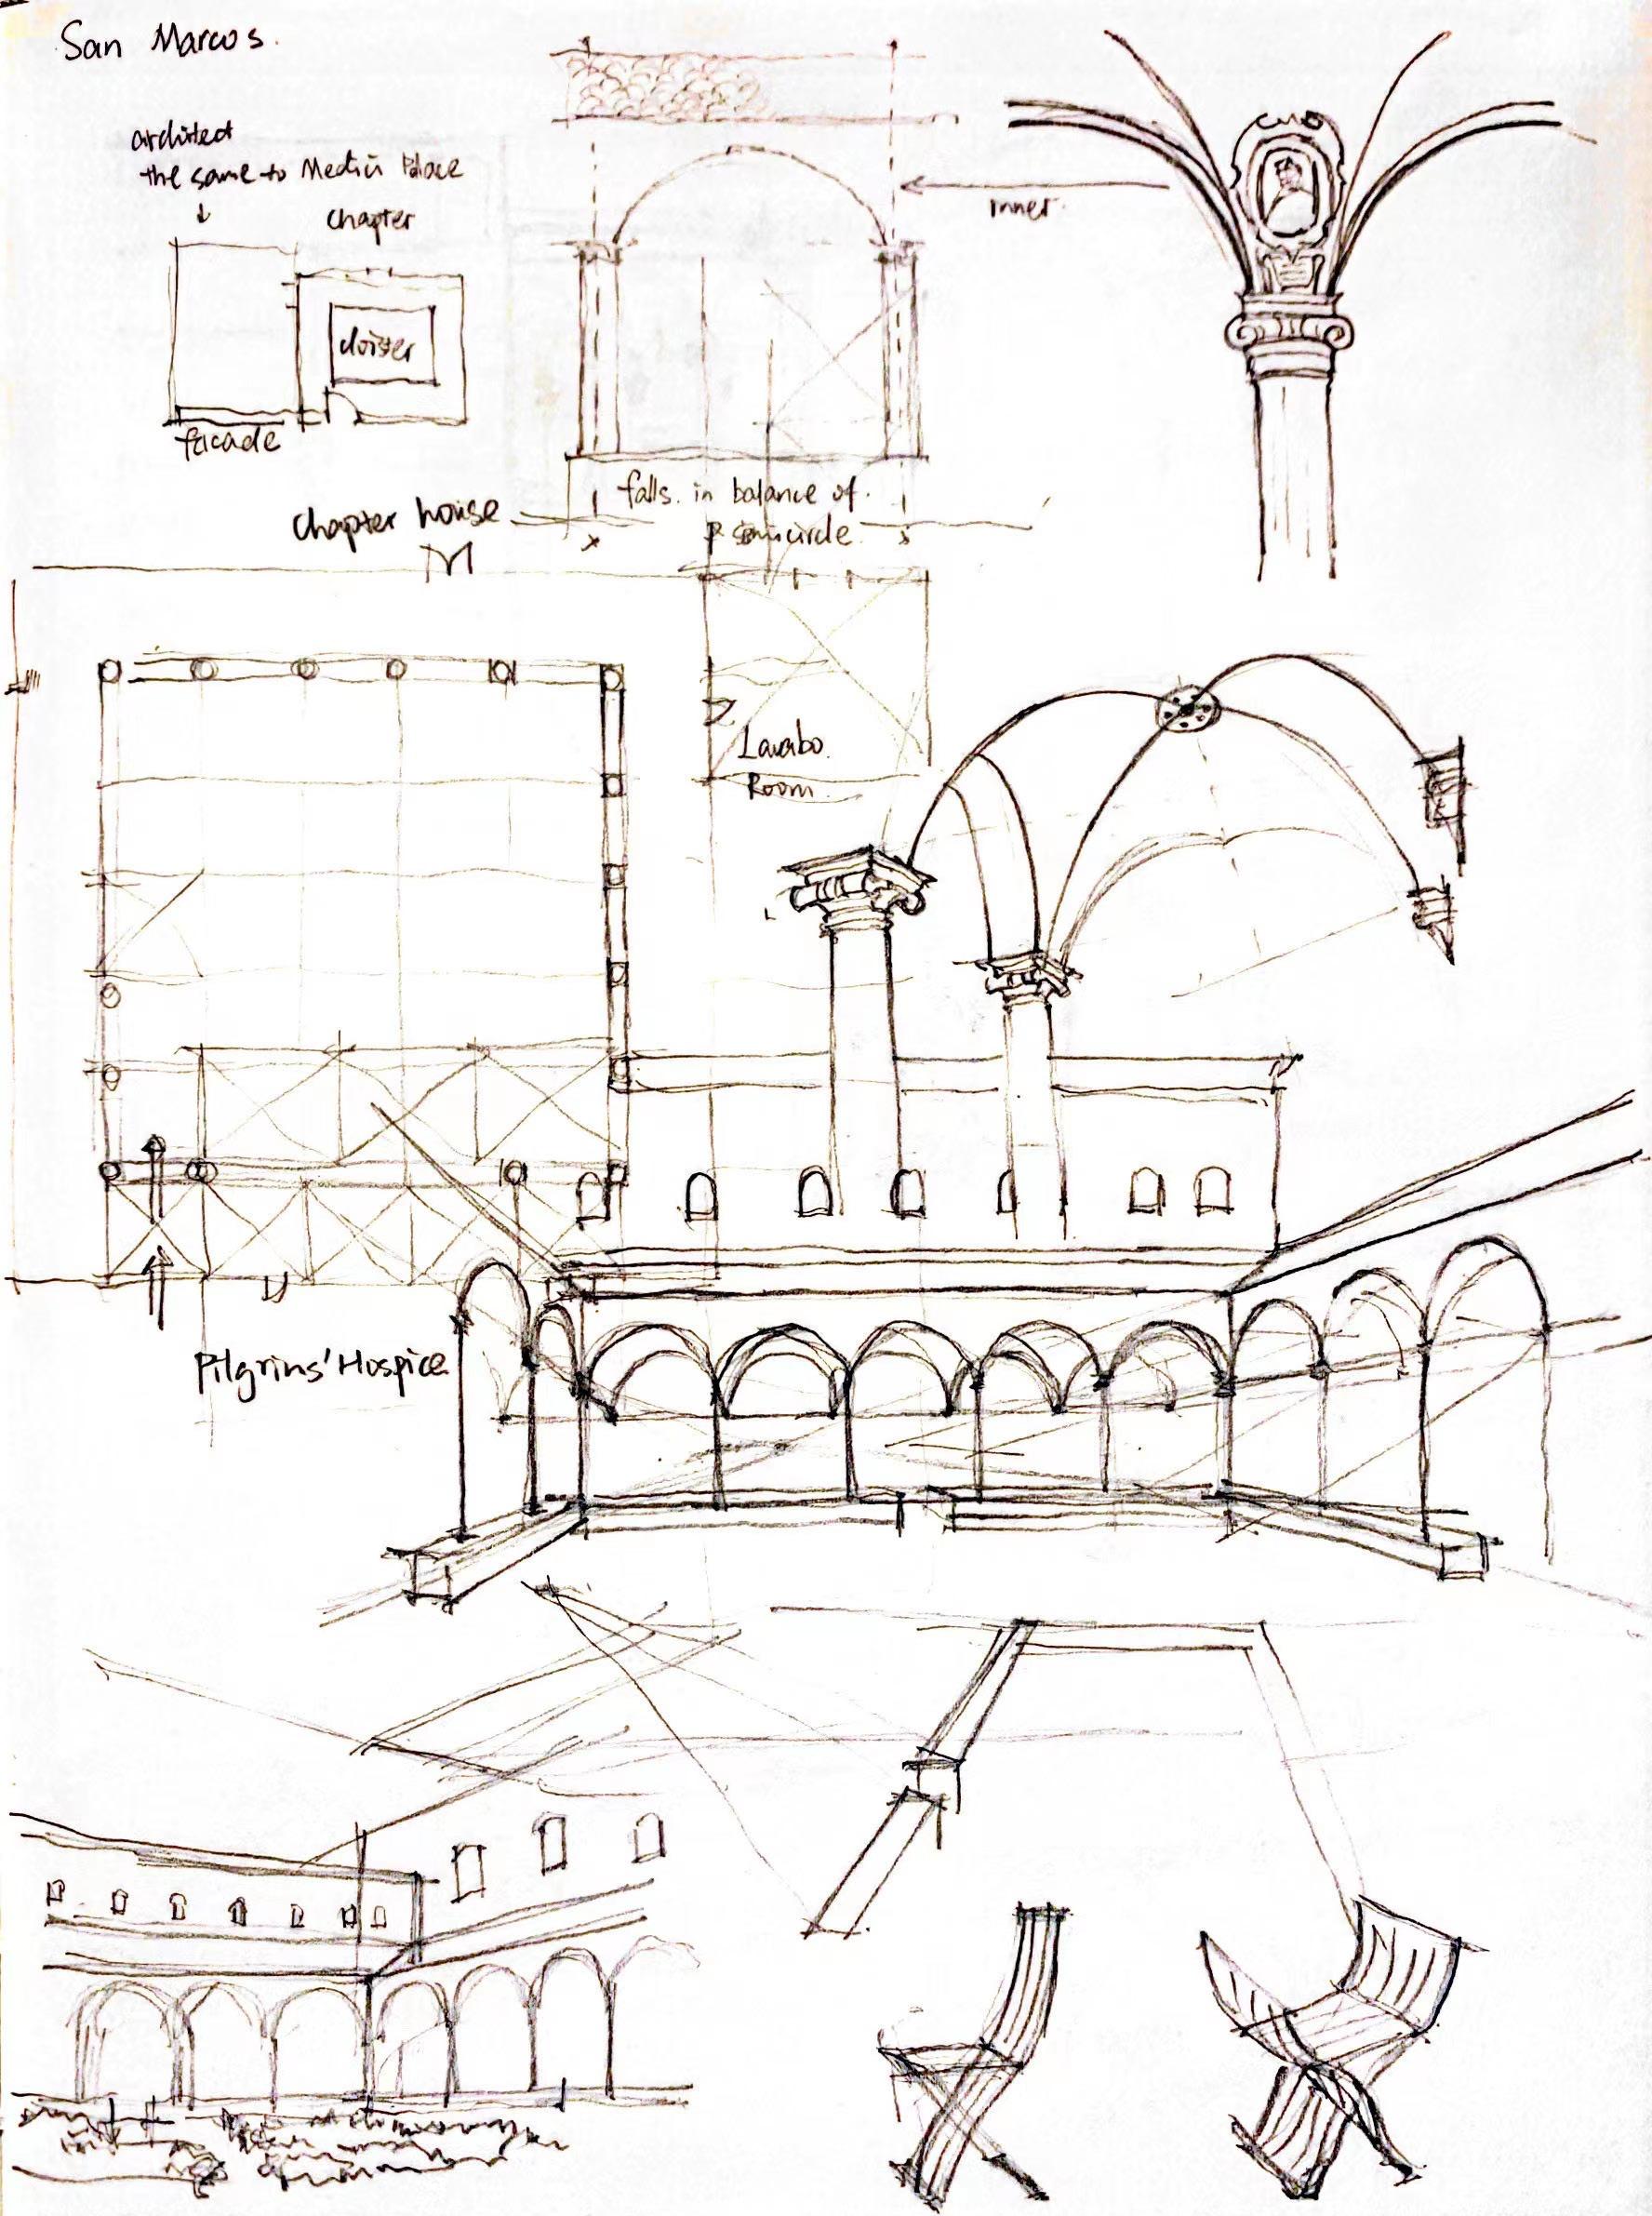 San Marcos.
architect
the same to Medici Palace
chapter
cloister
facade
inner.
falls. in balance of.
semicircle.
chapter house
Lavabo.
Room.
Pilgrims' Hospice